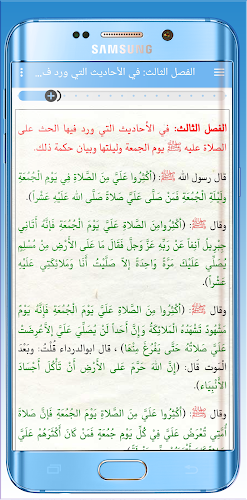 SAMSUNG
الفصل الثالث: في الأحاديث التي ورد ف...
الفصل الثالث: في الأحاديث التي ورد فيها الحث على
الصلاة عليه ﷺ يوم الجمعة وليلتها وبيان حكمة ذلك.
قال رسول الله ﷺ: (أَكْثِرُوا عَلَيَّ مِنَ الصَّلاَةِ فِي يَوْمِ الْجُمُعَةِ
وَلَيْلَةِ الْجُمُعَةِ فَمَنْ صَلَّى عَلَيَّ صَلاَةً صَلَّى الله عَلَيْهِ عَشْراً).
وقال ﷺ: (أَكْثِرُوا مِنَ الصَّلاَةِ عَلَيَّ يَوْمَ الْجُمُعَةِ فَإِنَّهُ أَتَانِي
جِبْرِيلُ آنِفاً عَنْ رَبِّهِ عَزَّ وَجَلَّ فَقَالَ مَا عَلَى الأَرْضِ مِنْ مُسْلِمٍ
يُصَلِّي عَلَيْكَ مَرَّةً وَاحِدَةً إِلاَّ صَلَّيْتُ أَنَا وَمَلاَئِكَتِي عَلَيْهِ
عَشْراً).
وقال ﷺ: (أَكْثِرُوا مِنَ الصَّلاَةِ عَلَيَّ يَوْمَ الْجُمُعَةِ فَإِنَّهُ يَوْمٌ
مَشْهُودٌ تَشْهَدُهُ الْمَلاَئِكَةُ وَإِنَّ أَحَداً لَنْ يُصَلِّيَ عَلَيَّ إِلاَّ عُرِضَتْ
عَلَيَّ صَلاَتُهُ حَتَّى يَفْرُغَ مِنْهَا) ، قال ابوالدرداء قُلْتُ: وَبَعْدَ
الْمَوْتِ قال: (إِنَّ اللهَ حَرَّمَ عَلَى الأَرْضِ أَنْ تَأْكُلَ أَجْسَادَ
الأَنْبِيَاءِ).
وقال ﷺ: (أَكْثِرُوا عَلَيَّ مِنَ الصَّلاَةِ يَوْمَ الْجُمُعَةِ فَإِنَّ صَلاَةَ
أُمَّتِي تُعْرَضُ عَلَيَّ فِي كُلِّ يَوْمِ جُمُعَةٍ فَمَنْ كَانَ أَكْثَرَهُمْ عَلَيَّ